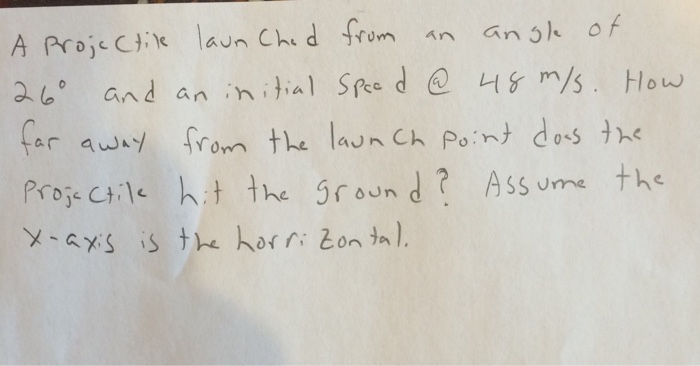 A Projectile launched from an angle of
26° and an initial speed @ 48 m/s. How
far away from the launch point does the
Projectile hit the ground? Assume the
x-axis is the horrizontal.